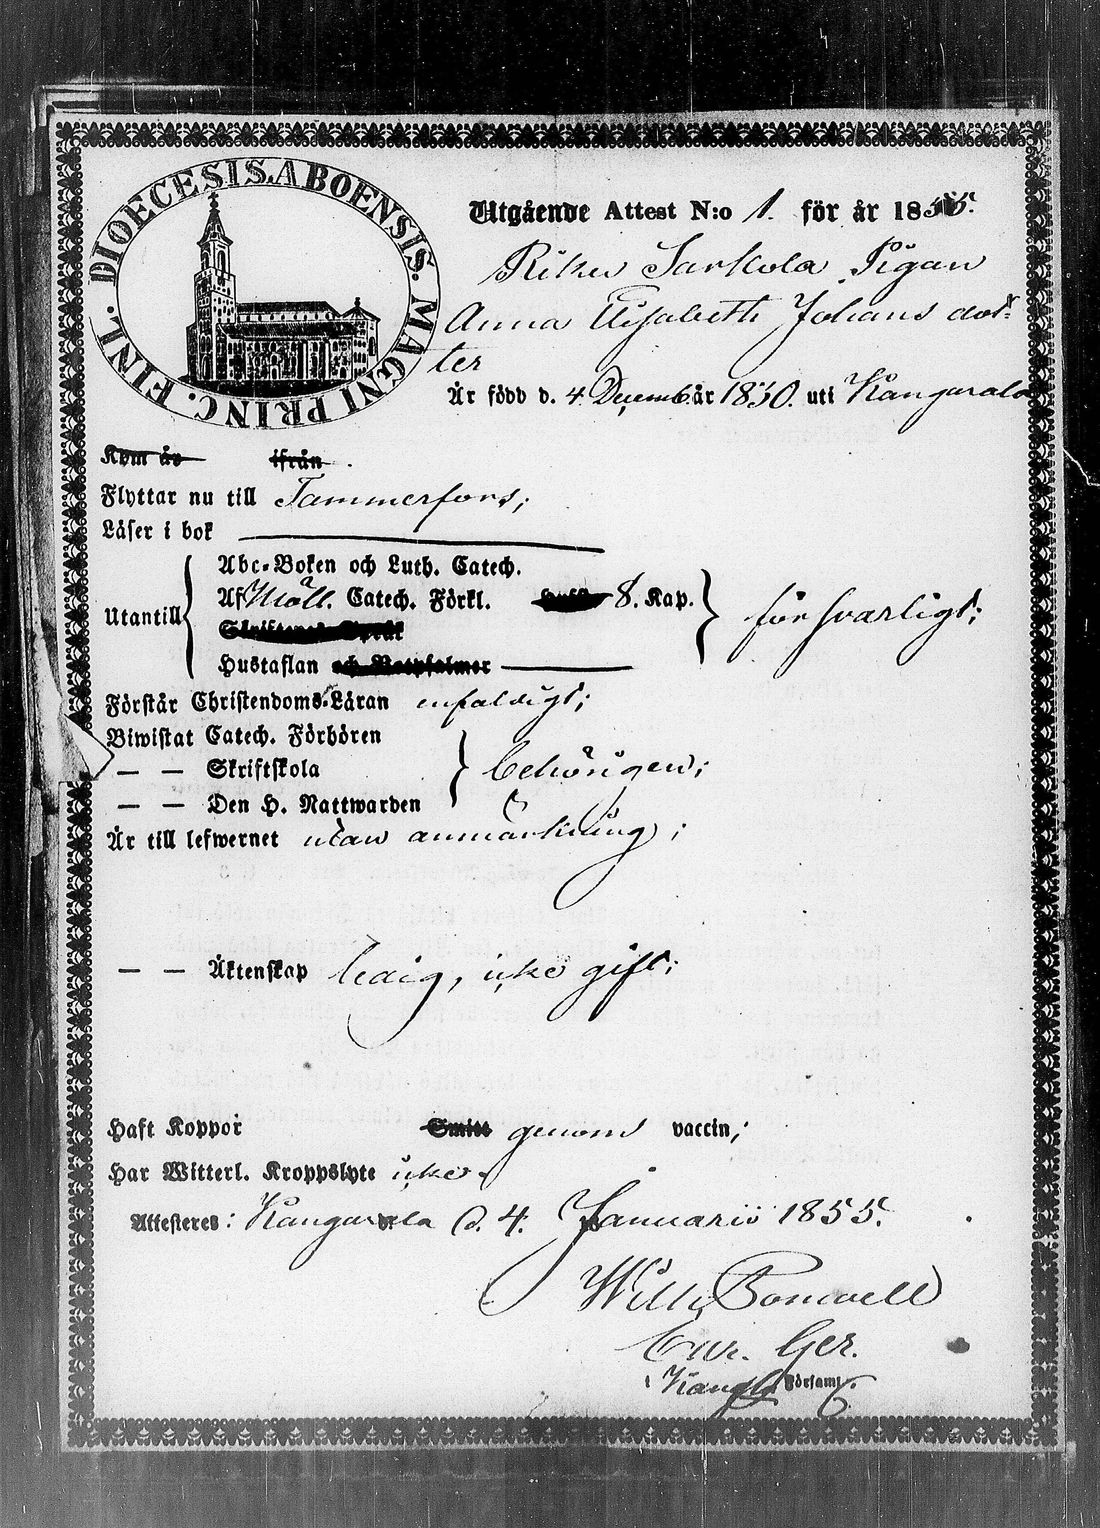 DIOECESIS ABOENSIS. MAGNI PRINC. FINL.
Utgående Attest N:o 1. för år 1855.
Sarkola Pigan
Anna Elisabeth Johans dot=
ter
Är född d. 4 Decemb. år 1830. uti Kangasala
Kom år ifrån
Flyttar nu till Tammerfors;
Läser i bok
Utantill
Abc-Boken och Luth. Catech.
Af Möll. Catech. Förkl. 8. Kap.
försvarligt;
Skriftenes Språk
Hustaflan och Botpsalmer
Förstår Christendoms-Läran enfaldigt;
Biwistat Catech. Förhören
— — Skriftskola behörigen;
— — Den H. Nattwarden
Är till lefwernet utan anmärkning;
— — Äktenskap ledig, icke gift;
Haft Koppor Smitt genom vaccin;
Har Witterl. Kroppslyte icke.
Attesteras: Kangasala d. 4. Januarii 1855.
Wilh. Bonwell
Cur. Ger.
i Kangla Församl.